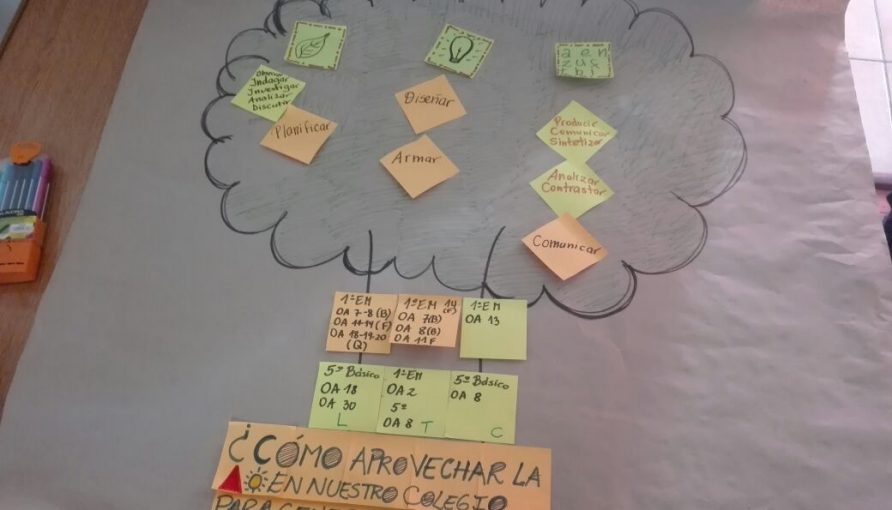 Indagar
Investigar
Analizar
Discutir
Planificar
Diseñar
Armar
a e m
Producir
Comunicar
Sintetizar
Analizar
Contrastar
Comunicar
1º EM
OA 7-8 (B)
OA 11-14 (F)
OA 18-19-20
(Q)
1º EM 14
OA 7(B)
OA 8(B)
OA 11F
1º EM
OA 13
5º Básico
OA 18
OA 30
L
1º EM
OA 2
5º
OA 8 T
5º Básico
OA 8
C
¿CÓMO APROVECHAR LA
EN NUESTRO COLEGIO
PARA